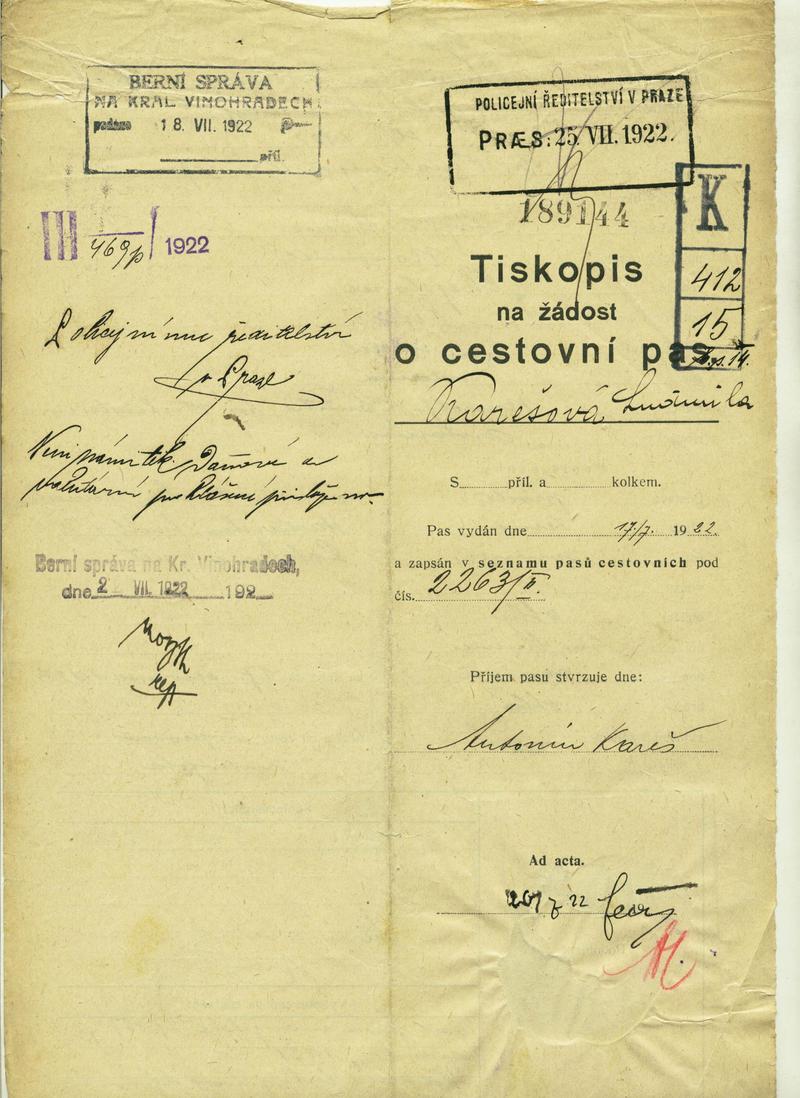 BERNÍ SPRÁVA
NA KRÁL. VINOHRADECH
podáno 18. VII. 1922
příl.
III 469p/1922
Policejnímu ředitelství
v Praze
Není námitek. Daňové a
valutární prohlášení
Berní správa na Kr. Vinohradech,
dne 2 VII. 1922 192
POLICEJNÍ ŘEDITELSTVÍ V PRAZE
PRÆS: 25. VII. 1922.
189144
K
412
15
Tiskopis
na žádost
o cestovní pas
Karešová Ludmila
S příl. a kolkem.
Pas vydán dne 17/7. 1922.
a zapsán v seznamu pasů cestovních pod
čís. 2263/II.
Příjem pasu stvrzuje dne:
Antonín Kareš
Ad acta.